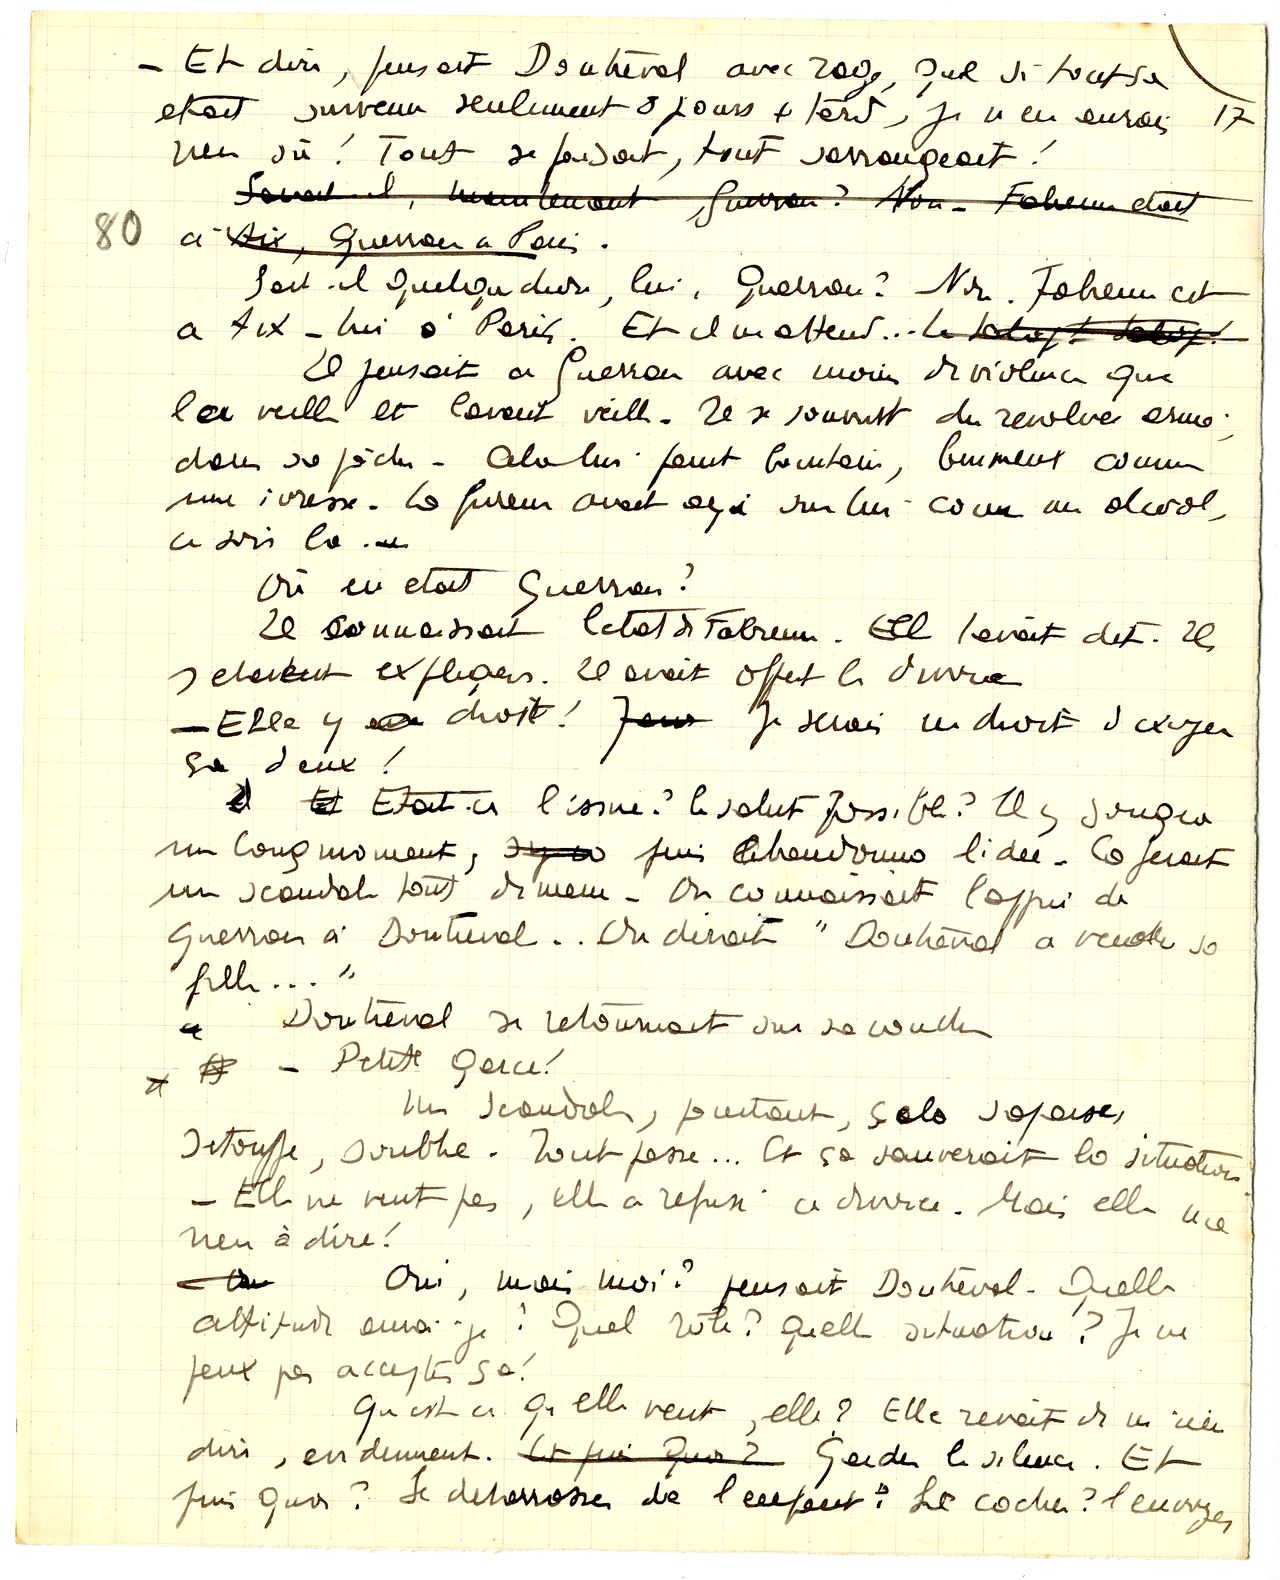 — Et dire, pensait Doutreval avec rage, que si tout ça
etait survenu seulement 8 jours + tard, je n en aurais 17
rien su ! Tout se faisait, tout sarrangeait !
Savait-il, maintenant, Guerran ? Non - Fabienne etait
80 a Aix, Guerran a Paris.
Sait-il quelque chose, lui, Guerran ? Non. Fabienne est
a Aix - lui a Paris. Et il m attend... le salop ! salop !
Il pensait a Guerran avec moins de violence que
la veille et lavant veille. Il se souvint du revolver armé,
dans sa poche - Cela lui parut lointain, brumeux comme
une ivresse. La fureur avait agi sur lui comme un alcool,
ce soir la.
Où en etait Guerran ?
Il connaissait letat de Fabienne. Elle lavait dit. Ils
s etaient expliqués. Il avait offert le divorce
— Elle y a droit ! J aus Je serais en droit d exiger
ça d eux !
Et Etait-ce l issue ? le salut possible ? Il y songea
un long moment, puis abandonna l idee. Ca ferait
un scandale tout de meme - On connaissait lappui de
Guerran à Doutreval.. On dirait " Doutreval a vendu sa
fille... "
Doutreval se retournait sur sa couche
— Petite Garce !
Un scandale, pourtant, cela sapaise,
setouffe, soublie. Tout passe... Et ça sauverait la situation.
— Elle ne veut pas, elle a refusé ce divorce. Mais elle n a
rien à dire !
Oui, mais moi ? pensait Doutreval. Quelle
attitude aurai-je ? Quel rôle ? Quelle situation ? Je ne
peux pas accepter ça !
Qu est ce qu elle veut, elle ? Elle revait de ne rien
dire, evidemment. Et puis quoi ? Garder le silence. Et
puis quoi ? Se debarrasser de l enfant ? Le cacher ? l envoyer